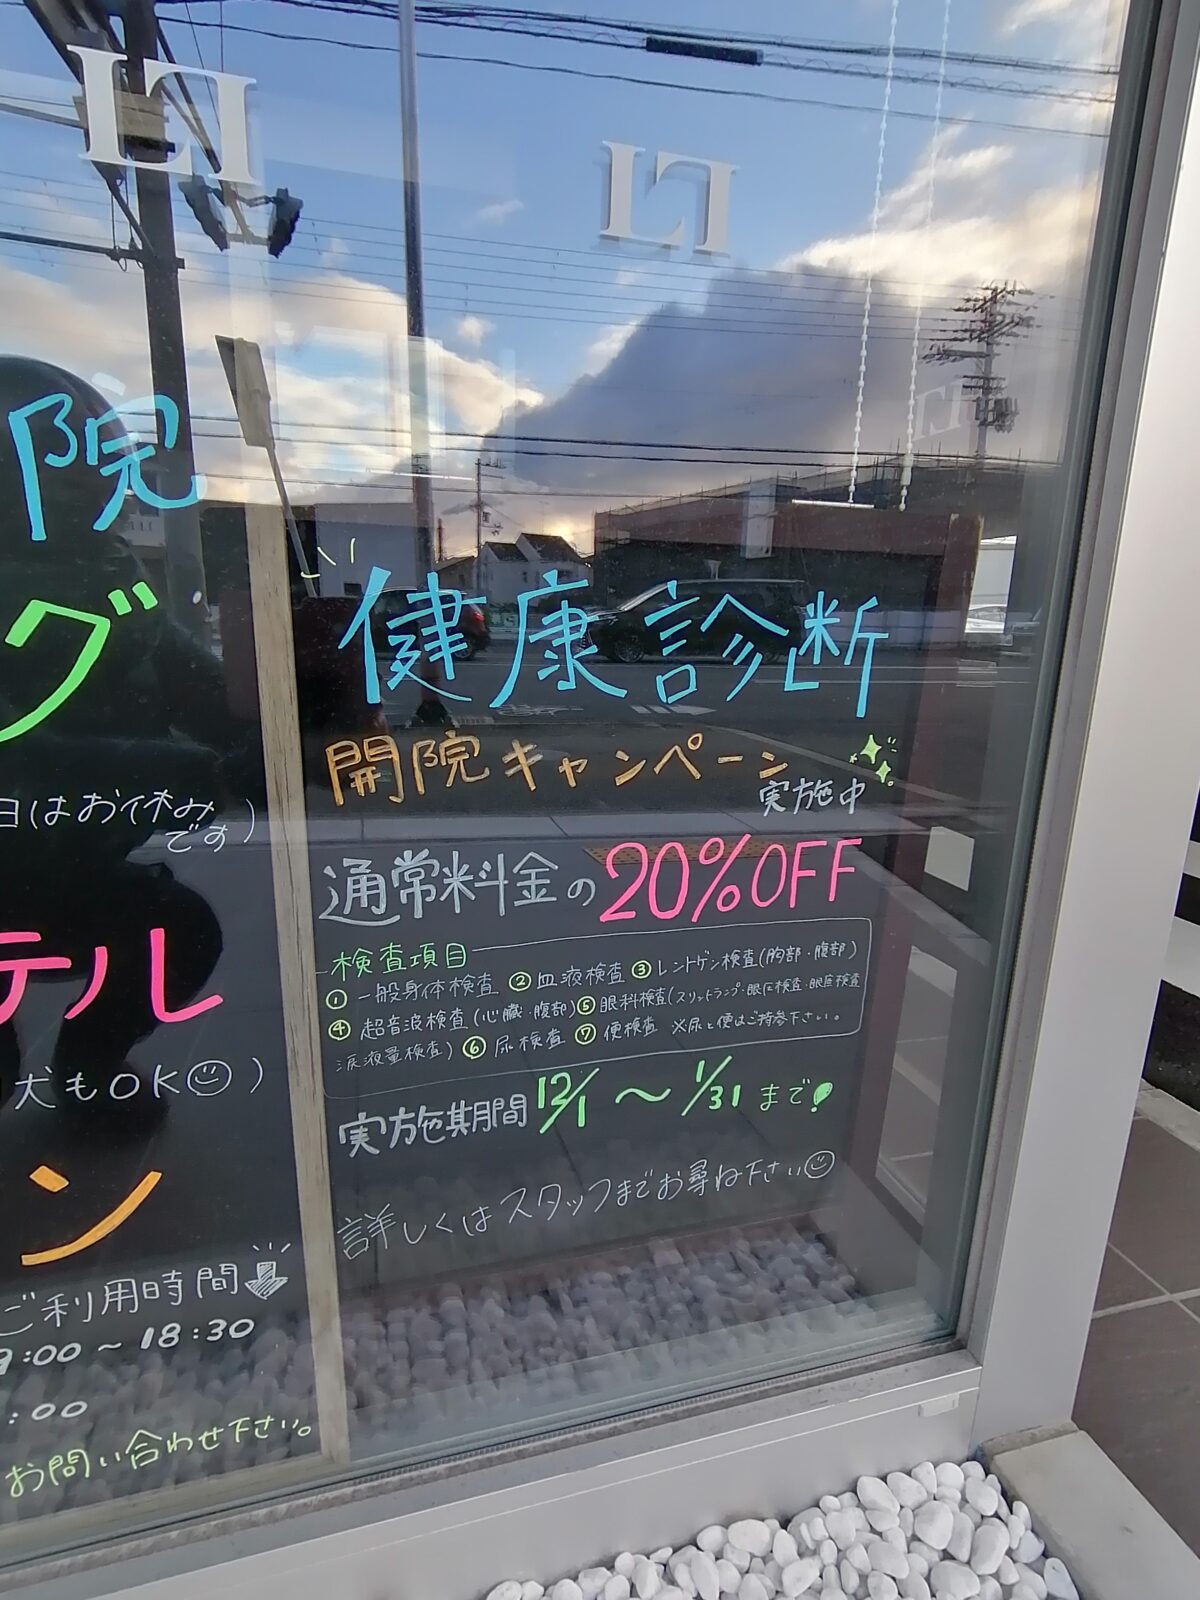 院
グ
日はお休み
です)
テル
犬もOK)
ン
ご利用時間
9:00~18:30
:00
お問い合わせ下さい。
健康診断
開院キャンペーン
実施中
通常料金の20%OFF
検査項目
① 一般身体検査 ② 血液検査 ③ レントゲン検査(胸部・腹部)
④ 超音波検査(心臓・腹部) ⑤ 眼科検査(スリットランプ・眼圧検査・眼底検査
涙液量検査) ⑥ 尿検査 ⑦ 便検査 ※尿と便はご持参下さい。
実施期間 12/1 ~ 1/31 まで!
詳しくはスタッフまでお尋ね下さい